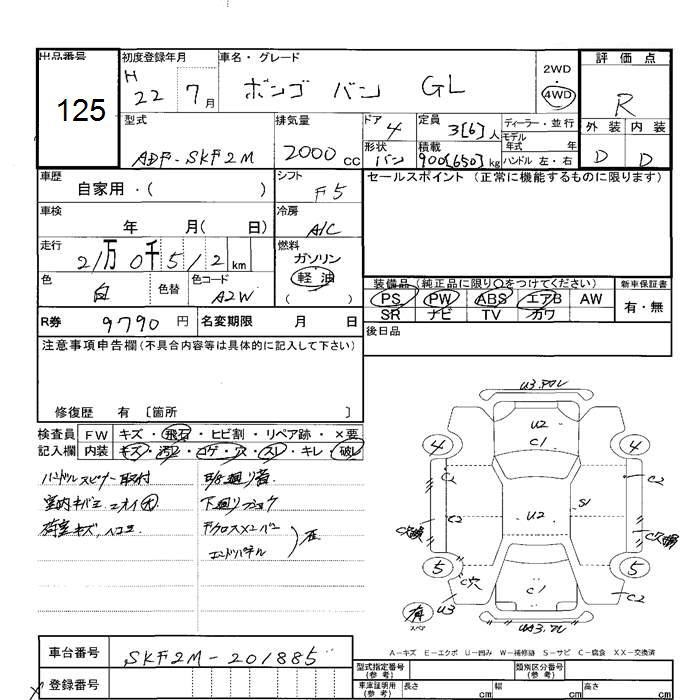 出品番号 初度登録年月 車名・グレード 評価点
125 H 22 7月 ボンゴ バン GL 2WD・4WD R
型式 排気量 ドア 定員 ディーラー・並行 外装 内装
ADF-SKF2M 2000cc 4 3[6]人 モデル年式 年 D D
形状 バン 積載 900[650]kg ハンドル 左・右
車歴 シフト セールスポイント(正常に機能するものに限ります)
自家用・( ) F5
車検 冷房
年 月( 日) A/C
走行 燃料
21万0千512km ガソリン
色 色替 色コード 軽油
白 A2W ( )
装備品(純正品に限り○をつけてください) 新車保証書
PS PW ABS エアB AW 有・無
SR ナビ TV カワ
R券 9790円 名変期限 月 日
後日品
注意事項申告欄(不具合内容等は具体的に記入して下さい)
修復歴 有 〔箇所 〕
検査員 FW キズ・飛石・ヒビ割・リペア跡・×要
記入欄 内装 キズ・汚れ・コゲ・穴・スレ・キレ・破レ
ハンドルスピナー取付
室内キバミ ニオイ大
荷室キズ、ヘコミ
下廻りサビ
エンドパネル
U2
C1
4 4
C2 C2
C2 U2 S1
5 5
C穴 C1 C2
有 U3
スペア
A-キズ E-エクボ U-凹み W-補修跡 S-サビ C-腐食 XX-交換済
車台番号 SKF2M-201885
登録番号
型式指定番号(参考) 類別区分番号(参考)
車庫証明用(参考) 長さ cm 幅 cm 高さ cm